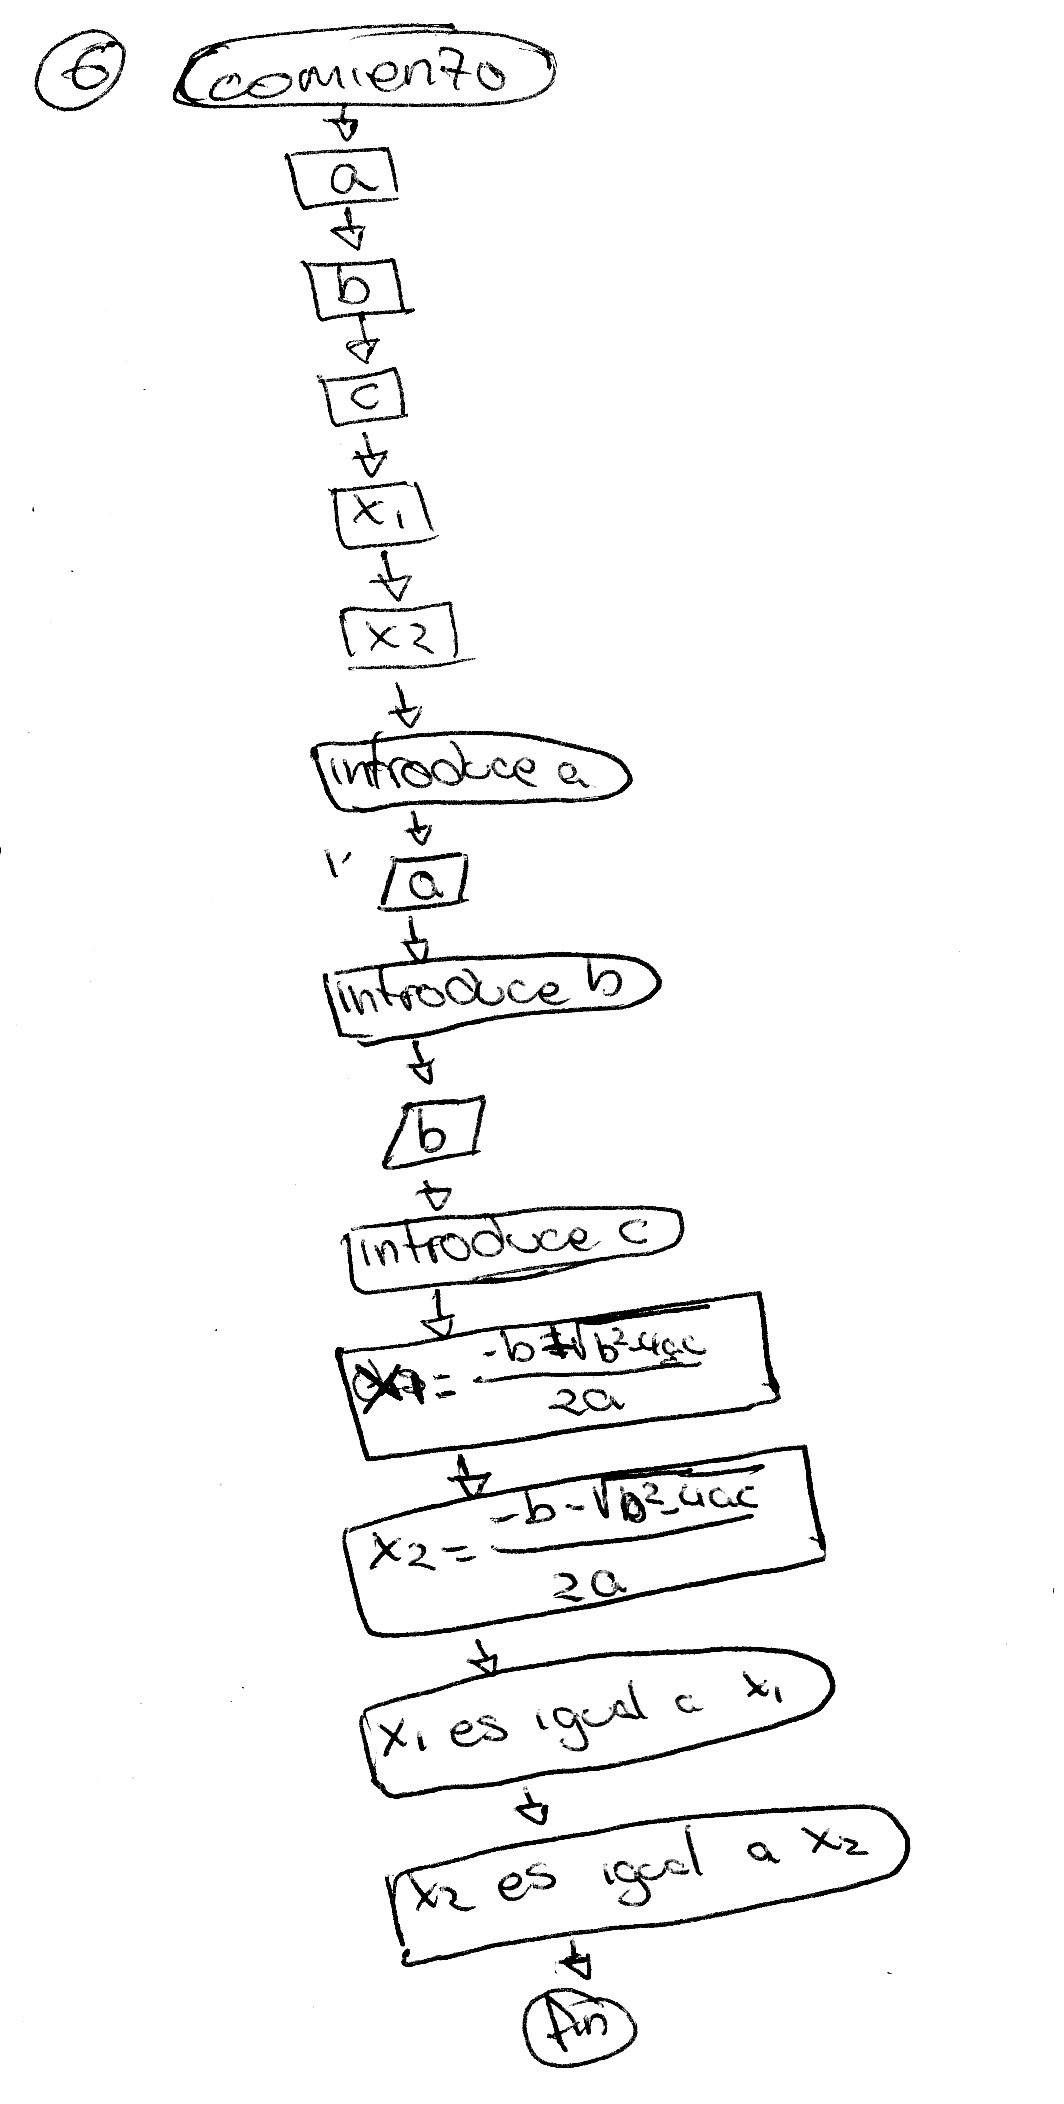 6 comienzo
a
b
c
x1
x2
introduce a
a
introduce b
b
introduce c
= -b+√b²-4ac
2a
x2 = -b-√b²-4ac
2a
x1 es igual a x1
x2 es igual a x2
fin